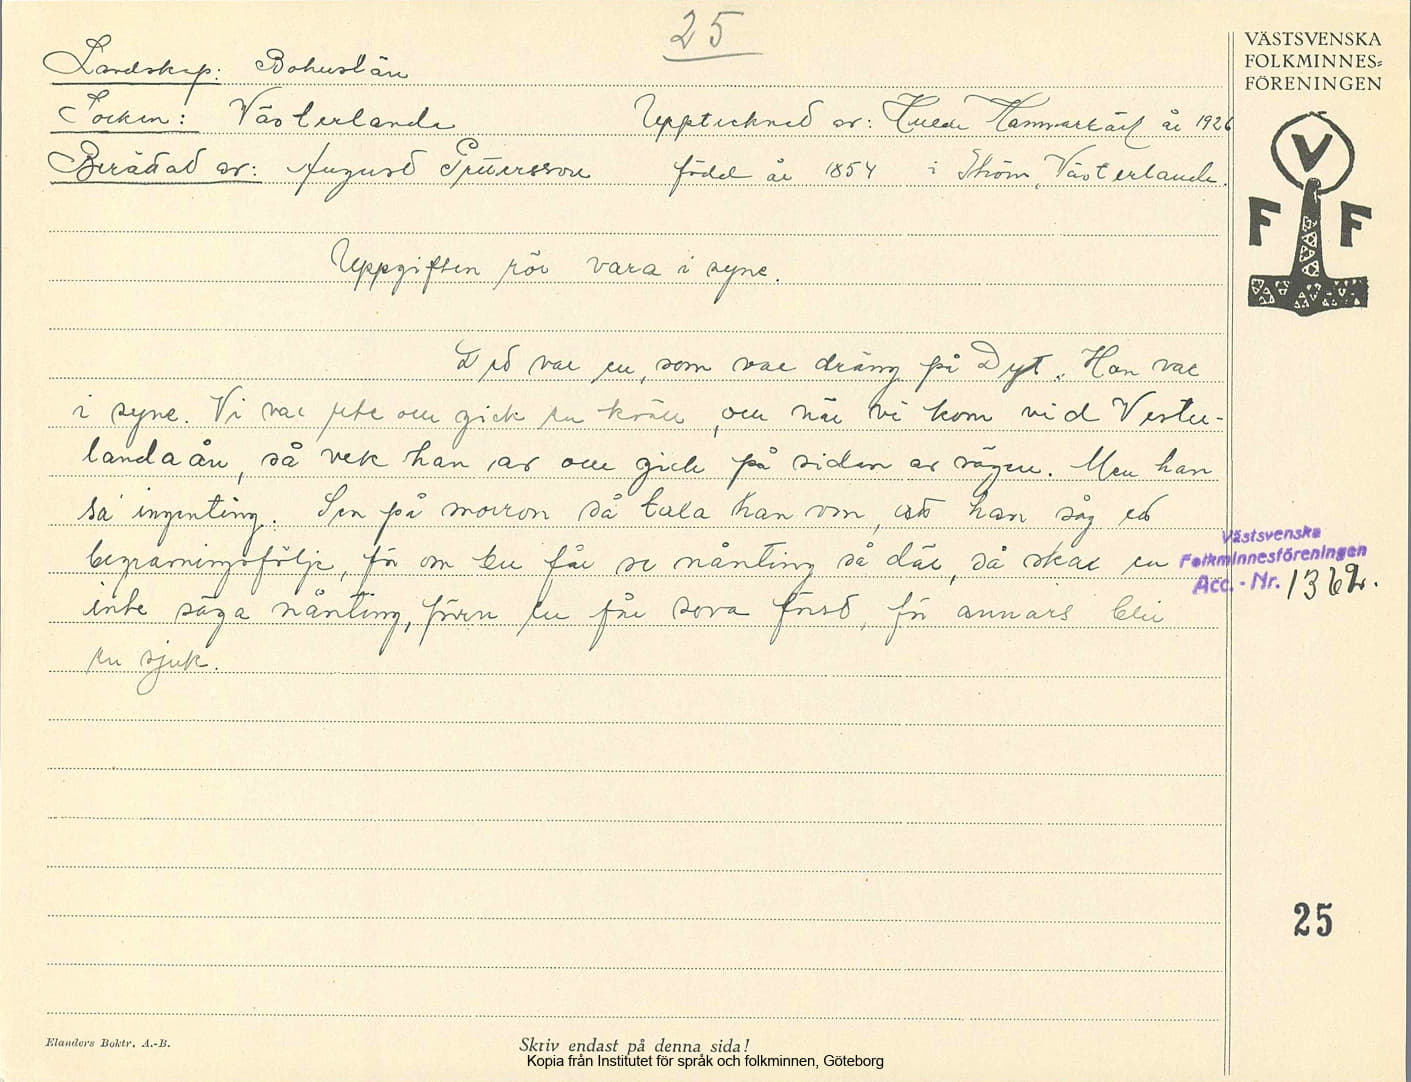 25
VÄSTSVENSKA
FOLKMINNES=
FÖRENINGEN
Landskap: Bohuslän
Socken: Västerlanda Upptecknad av: Hulda Hammarbäck år 1926
Berättad av: August Pettersson född år 1854 i Ström, Västerlanda.
V
F F
Uppgiften rör vara i syne.
Dед var en, som var dräng på Dyt. Han var
i syne. Vi var ute och gick en kväll, och när vi kom vid Vester-
landaån, så vek han av och gick på sidan av vägen. Men han
sa ingenting. Sen på morron så tala han om, att han såg ett
begravningsfölje, för om en får se nånting så där, så skal en
inte säga nånting, förrn en får sova först, för annars blir
en sjuk.
Västsvenska
Folkminnesföreningen
Acc. - Nr. 1362.
25
Elanders Boktr. A.-B.
Skriv endast på denna sida!
Kopia från Institutet för språk och folkminnen, Göteborg